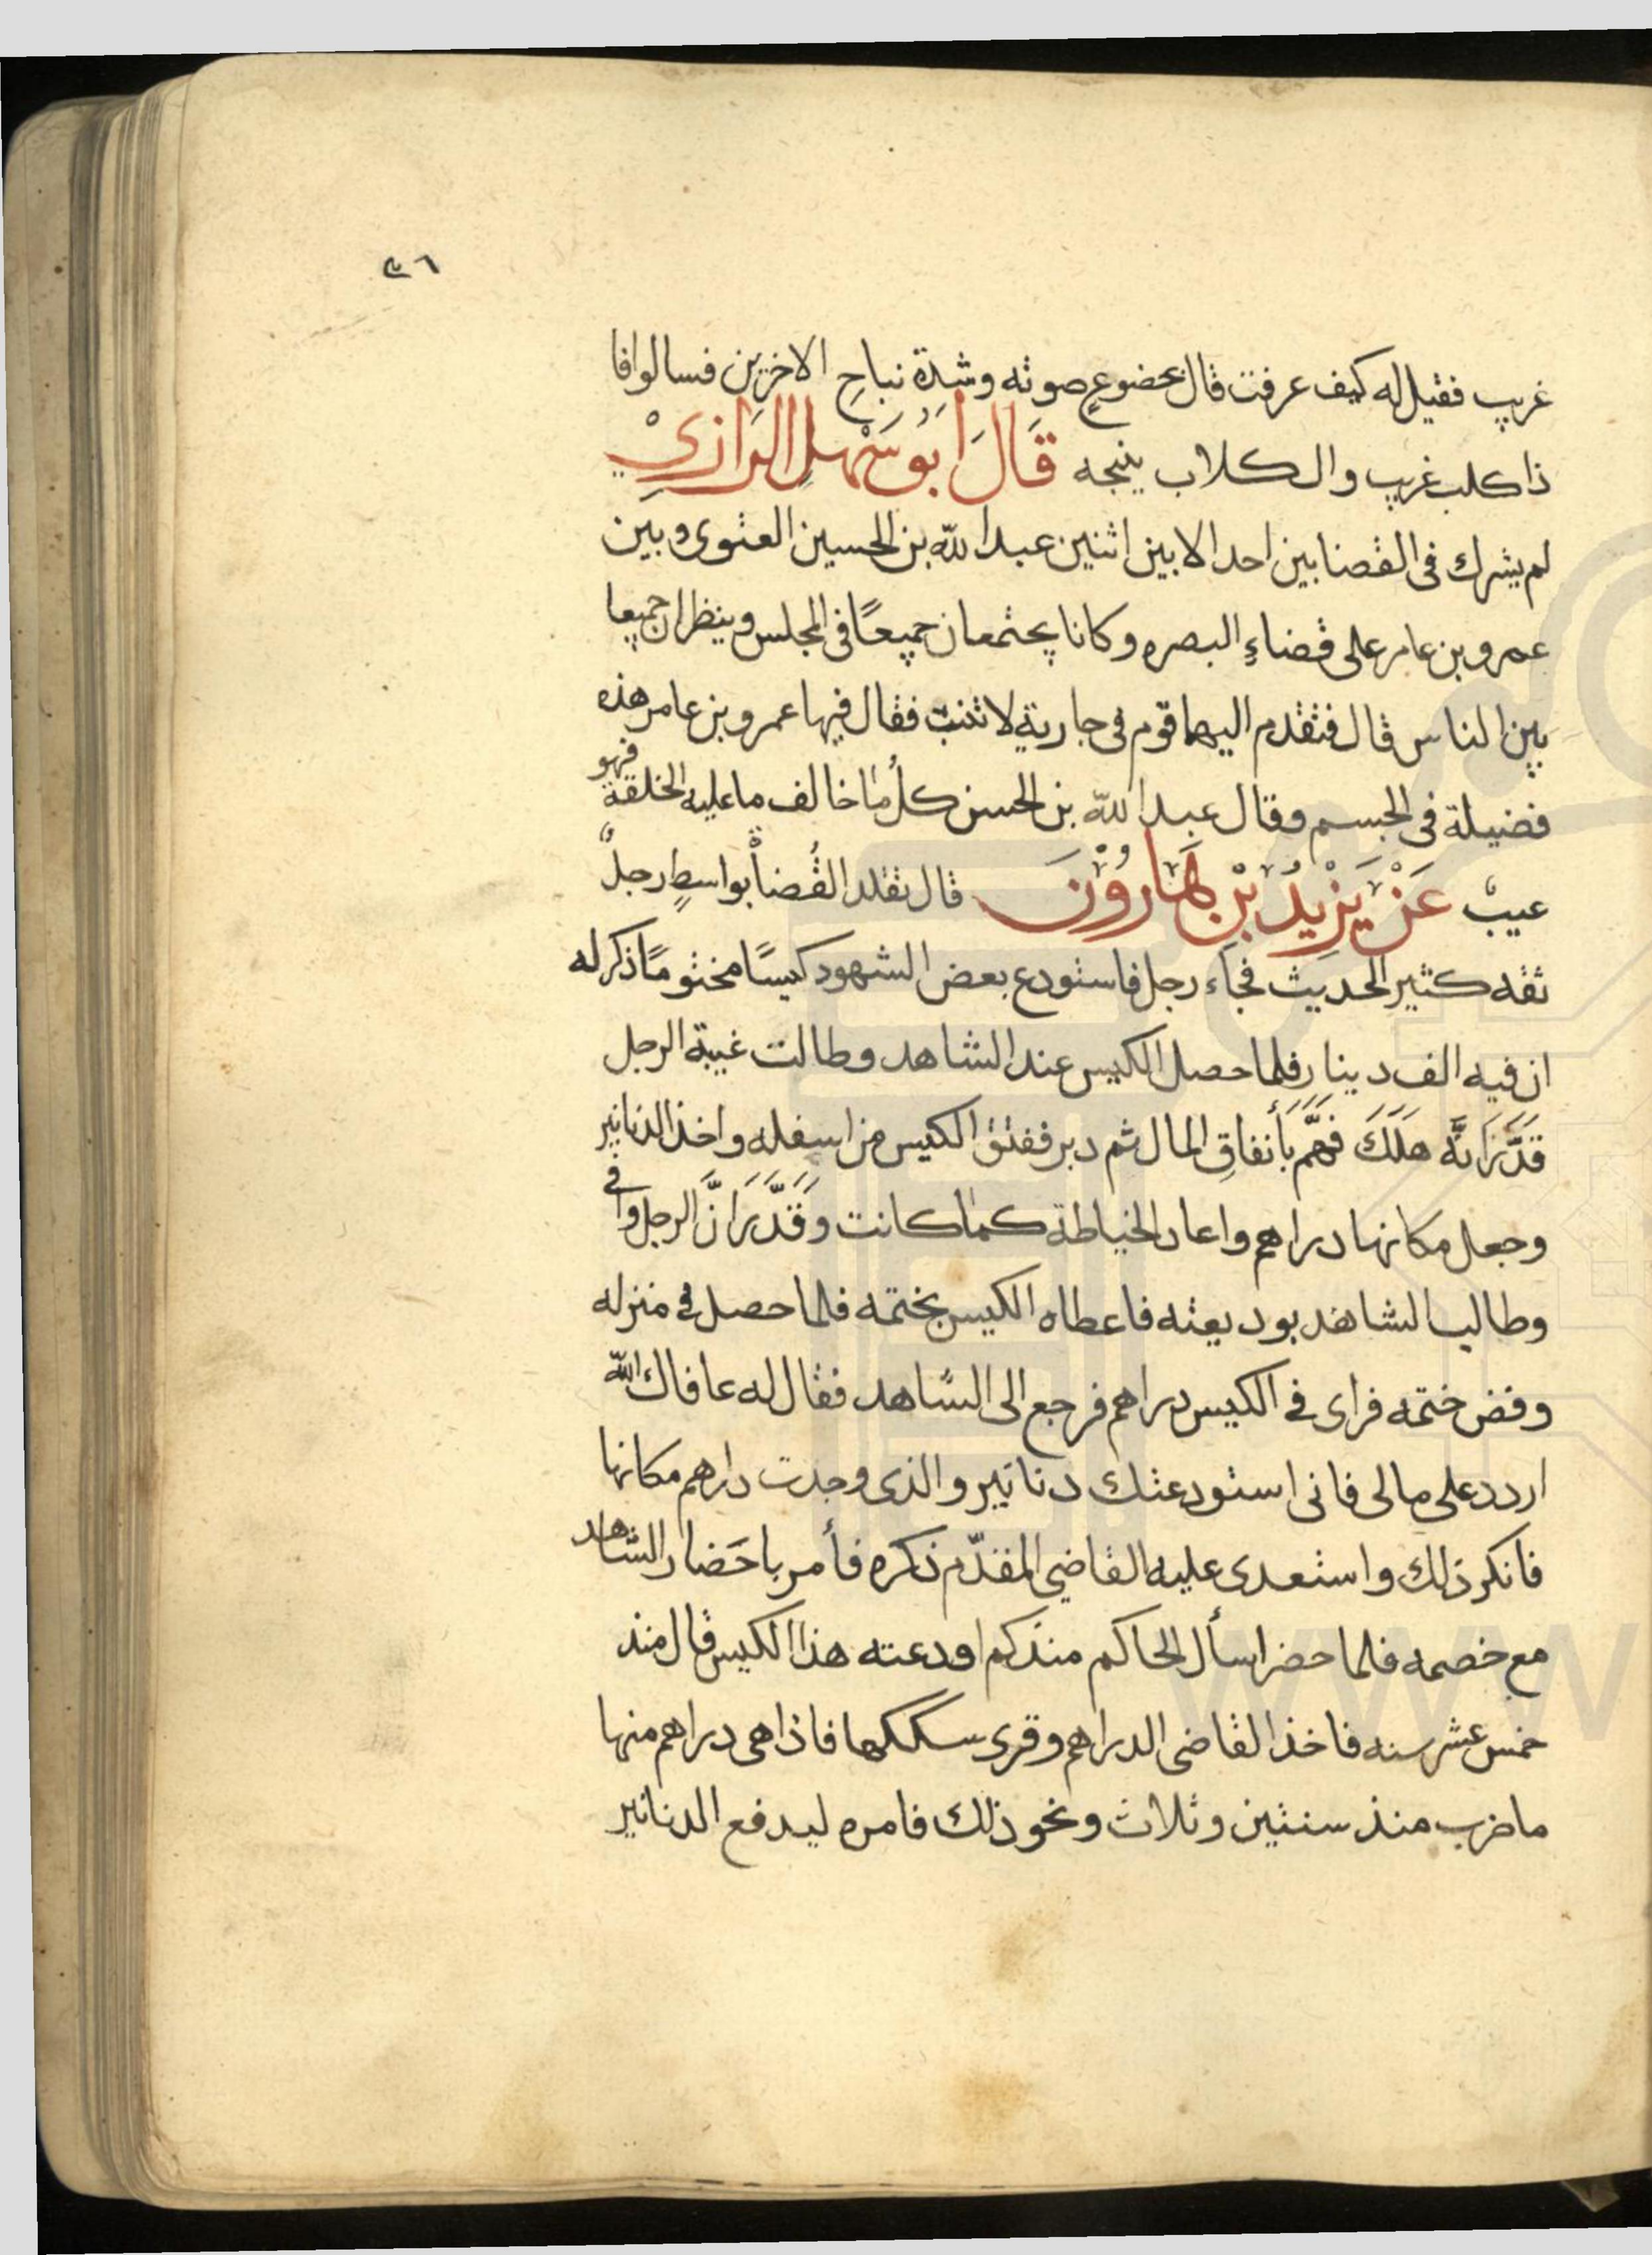 ٤٦
غريب فقيل له كيف عرفت قال بخضوع صوته وشدة نباح الاخرين فسالوا فا
ذا كلب غريب والكلاب ينبحه قَالَ أَبُو سَهْلِ الرَازِيْ
لم يشرك فى القضا بين احد الا بين اثنين عبد الله بن الحسين العنوى وبين
عمرو بن عامر على قضاءِ البصره وكانا يجتمعان جميعًا فى المجلس وينظران جميعا
بين الناس قال فتقدم اليهما قوم فى جارية لا تنبت فقال فيها عمرو بن عامر هذه
فضيلة فى الجسم وقال عبد الله بن الحسن كلُّ ما خالف ما عليه الخلقة فهو
عيبٌ عَنْ يَزِيْدُ بْنُ هَارُوْنَ قال تقلد القُضا بواسطٍ رجلٌ
ثقه كثير الحديث فجآء رجل فاستودع بعض الشهود كيسًا مختومًا ذكر له
ان فيه الف دينار فلما حصل الكيس عند الشاهد وطالت غيبة الرجل
قَدَّرَ انَّه هَلَكَ فَهَّم بأنفاقِ المال ثم دبر ففتق الكيس من اسفله واخذ الدنانير
وجعل مكانها دراهم واعاد الخياطة كما كانت وَقَدَّرَ انَّ الرجل وافى
وطالب الشاهد بوديعته فاعطاه الكيس بختمه فلما حصل فى منزله
وفض ختمه فراى فى الكيس دراهم فرجع الى الشاهد فقال له عافاك الله
اردد على مالى فانى استودعتك دنانير والذى وجدت دارهم مكانها
فانكر ذلك واستعدى عليه القاضى المقدّم ذكره فأمر باحَضار الشاهد
مع خصمه فلما حضرا سأل الحاكم منذ كم اودعته هذا الكيس قال منذ
خمس عشر سنه فاخذ القاضى الدراهم وقرى سككها فاذا هى دراهم منها
ما ضرب منذ سنتين وثلاث ونحو ذلك فامره ليدفع الدنانير